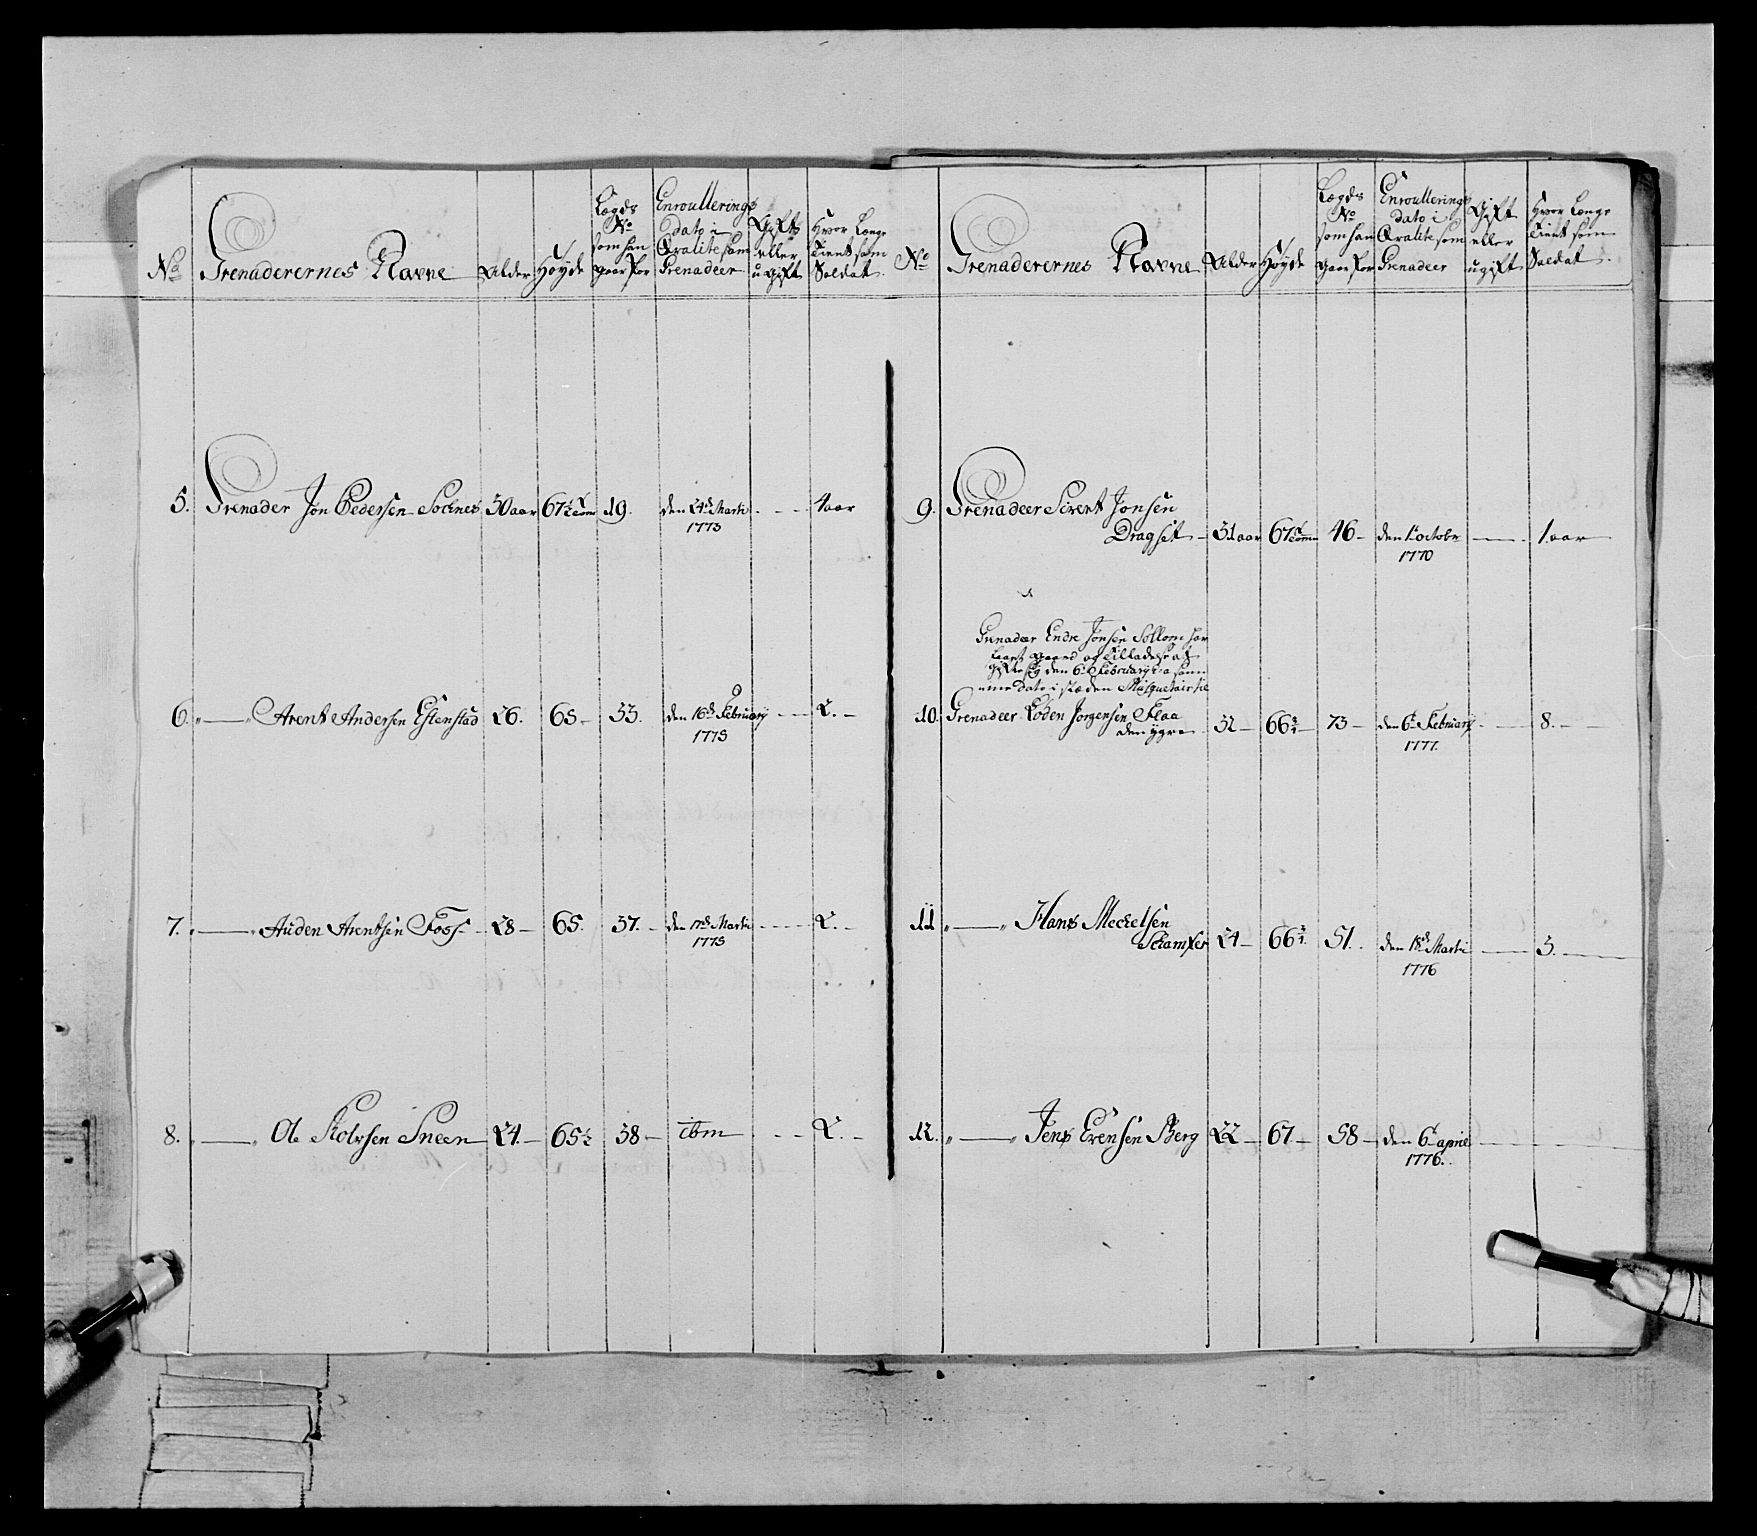 No
Grenaderernes Navne
Alder
Høyde
Lægds
No
som han
gaar for
Enroullerings
dato i
Qvalite som
Grenadeer
Gift
eller
ugift
Hvor Længe
Tient som
Soldat.
5. Grenader Jon Pedersen Sochnes 30 aar 67½ Tom 19. den 24de Marti - - 4 aar
1773
6. " — " Arent Andersen Estenstad 26. 65 — 33. den 16de February - - 2. -
1775
7. " — " Auden Arentsen Foss 28 — 65. 37. - den 17de Marti - - - 2. -
1775
8. " — " Ole Kolvsen Sneen 24 — 65½ 38 — ibm - - 2. -
No
Grenaderernes Navne
Alder
Høyde
Lægds
No
som han
gaar for
Enroullerings
dato i
Qvalite som
Grenadeer
Gift
eller
ugift
Hvor Længe
Tient som
Soldat.
9. Grenadeer Sivert Jonsen
Dragset - 31 aar 67 Tomm 46 - den 1. octobr — 1. aar
1770
Grenadeer Endre Jonsen Sollom har
faaet gaard og Tilladelse at
gifte sig den 6te February a
dato i stæden Musquetair
10. Grenadeer Loden Jorgensen Flaa
den yngre 32 — 66¾ 73 — den 6te February - - 8. -
1777.
11 " — " Hans Meckelsen
Skamfer 24 — 66¾ 51. den 18de Marti — 3. —
1776
12. " — " Jens Evensen Berg 22 — 67 — 58 — den 6te aprie —
1776.